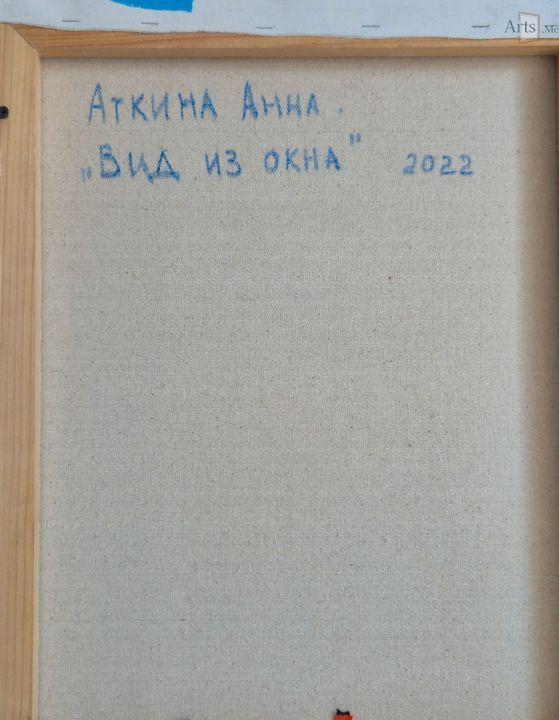 Arts
Аткина Анна.
„Вид из окна" 2022